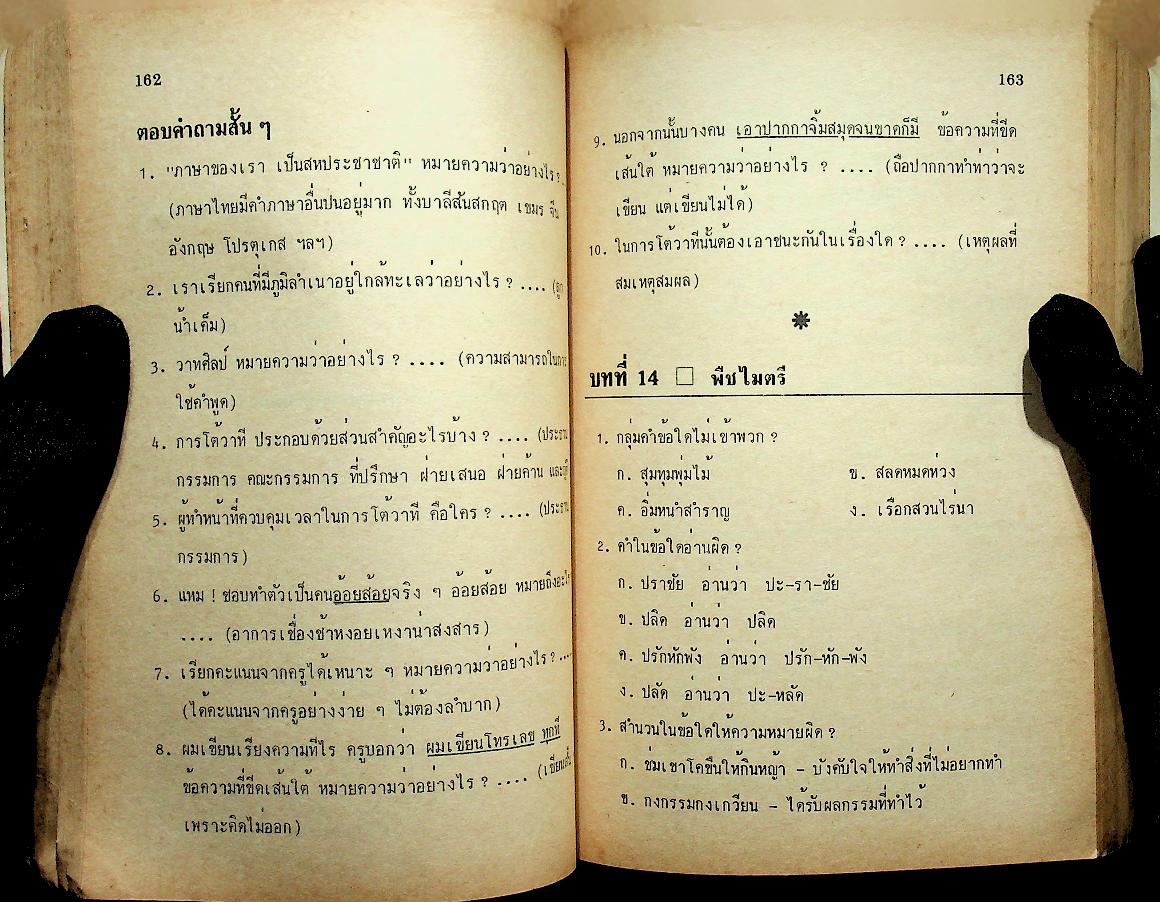 162
ตอบคำถามสั้น ๆ
1. "ภาษาของเรา เป็นสหประชาชาติ" หมายความว่าอย่างไร ?
(ภาษาไทยมีคำภาษาอื่นปนอยู่มาก ทั้งบาลีสันสกฤต เขมร จีน
อังกฤษ โปรตุเกส ฯลฯ)
2. เราเรียกคนที่มีภูมิลำเนาอยู่ใกล้ทะเลว่าอย่างไร ? .... (ลูก
น้ำเค็ม)
3. วาทศิลป์ หมายความว่าอย่างไร ? .... (ความสามารถในการ
ใช้คำพูด)
4. การโต้วาที ประกอบด้วยส่วนสำคัญอะไรบ้าง ? .... (ประธาน
กรรมการ คณะกรรมการ ที่ปรึกษา ฝ่ายเสนอ ฝ่ายค้าน
5. ผู้ทำหน้าที่ควบคุมเวลาในการโต้วาที คือใคร ? .... (ประธาน
กรรมการ)
6. แหม ! ชอบทำตัวเป็นคนอ้อยส้อยจริง ๆ อ้อยส้อย หมายถึงอะไร
.... (อาการเชื่องช้าหงอยเหงาน่าสงสาร)
7. เรียกคะแนนจากครูได้เหนาะ ๆ หมายความว่าอย่างไร ? ....
(ได้คะแนนจากครูอย่างง่าย ๆ ไม่ต้องลำบาก)
8. ผมเขียนเรียงความทีไร ครูบอกว่า ผมเขียนโทรเลข ทุกที
ข้อความที่ขีดเส้นใต้ หมายความว่าอย่างไร ? .... (เขียนสั้น
เพราะคิดไม่ออก)
163
9. นอกจากนั้นบางคน เอาปากกาจิ้มสมุดจนขาดก็มี ข้อความที่ขีด
เส้นใต้ หมายความว่าอย่างไร ? .... (ถือปากกาทำท่าว่าจะ
เขียน แต่เขียนไม่ได้)
10. ในการโต้วาทีนั้นต้องเอาชนะกันในเรื่องใด ? .... (เหตุผลที่
สมเหตุสมผล)
บทที่ 14 □ พืชไมตรี
1. กลุ่มคำข้อใดไม่เข้าพวก ?
ก. สุมทุมพุ่มไม้ ข. สลดหมดห่วง
ค. อิ่มหนำสำราญ ง. เรือกสวนไร่นา
2. คำในข้อใดอ่านผิด ?
ก. ปราชัย อ่านว่า ปะ-รา-ชัย
ข. ปลิด อ่านว่า ปลิด
ค. ปรักหักพัง อ่านว่า ปรัก-หัก-พัง
ง. ปลัด อ่านว่า ปะ-หลัด
3. สำนวนในข้อใดให้ความหมายผิด ?
ก. ข่มเขาโคขืนให้กินหญ้า - บังคับใจให้ทำสิ่งที่ไม่อยากทำ
ข. กงกรรมกงเกวียน - ได้รับผลกรรมที่ทำไว้